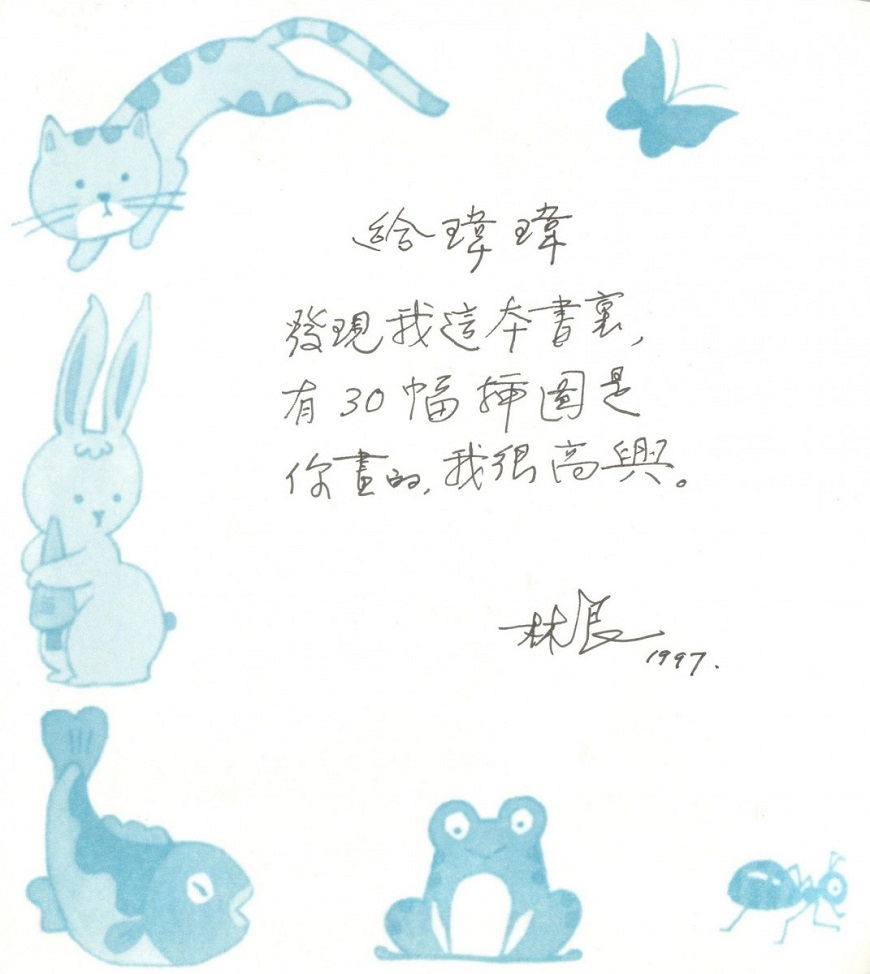 給瑋瑋
發現我這本書裏,
有30幅插圖是
你畫的,我很高興。
林良
1997.